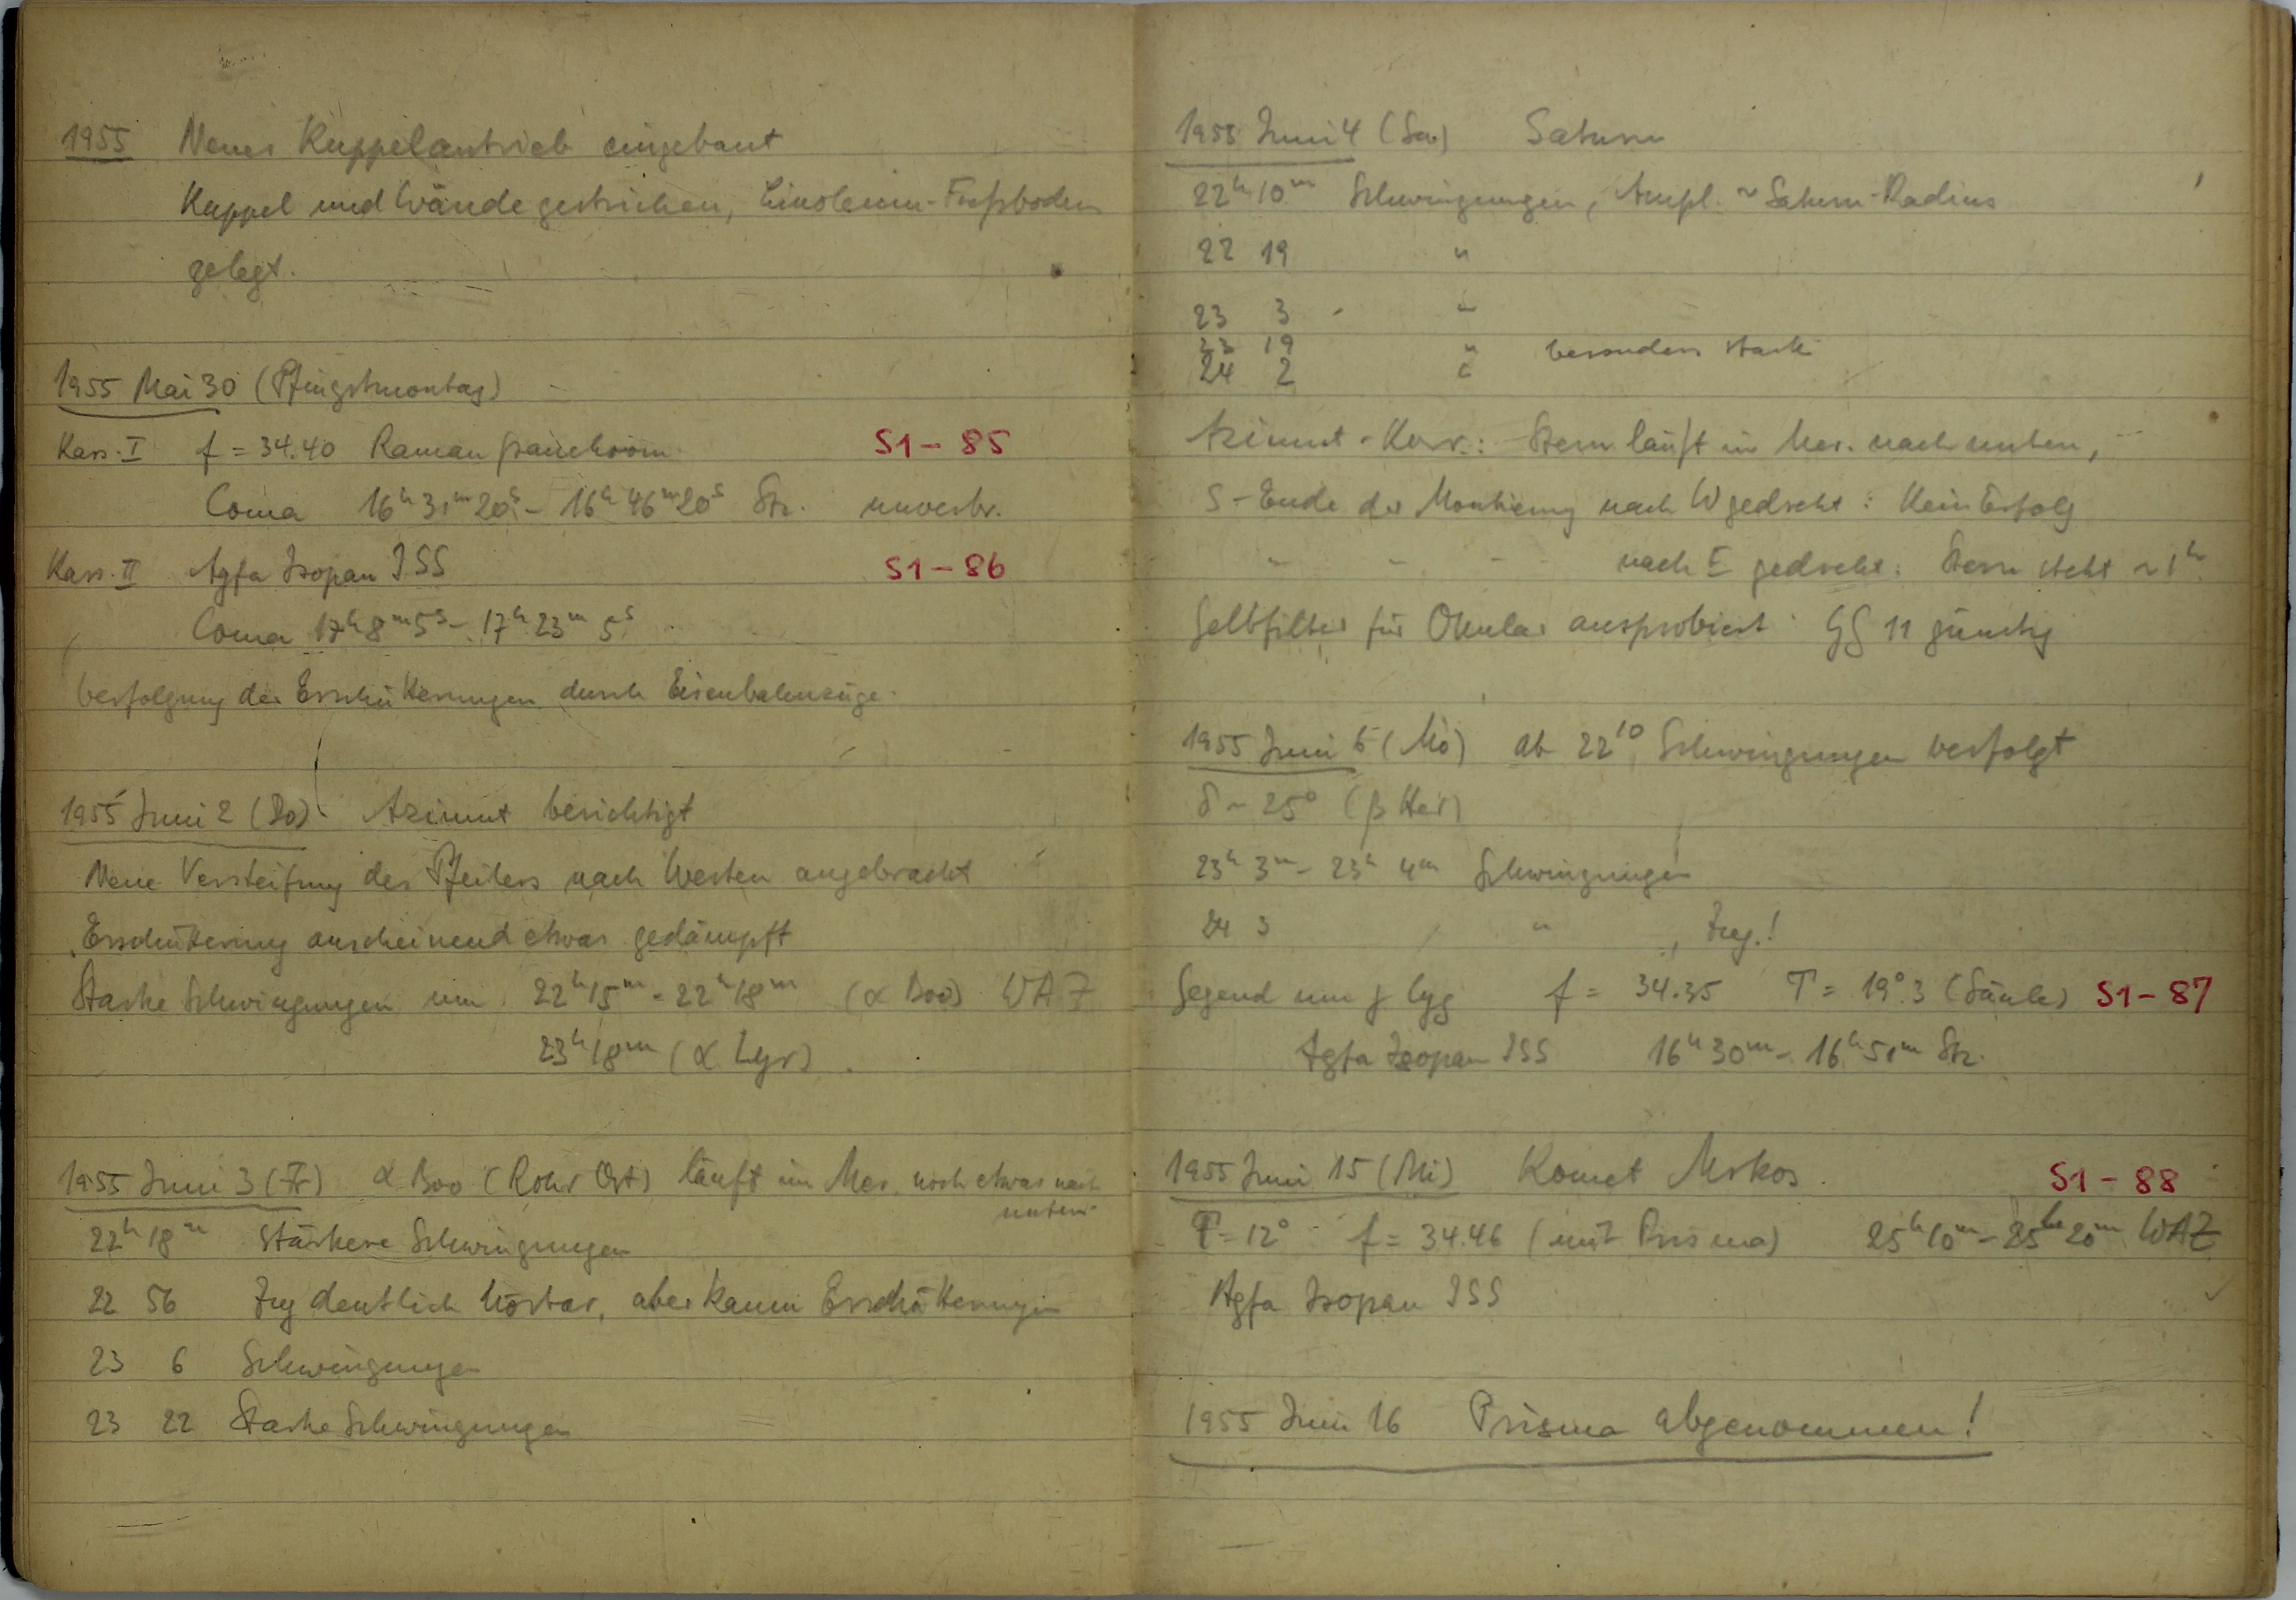 1955 Neuer Kuppelantrieb eingebaut
Kuppel und Wände gestrichen, Linoleum-Fußboden
gelegt.
1955 Mai 30 (Pfingstmontag)
Kass. I f = 34.40 S1 - 85
Coma 16h 31m 20s - 16h 46m 20s Stz. unverbr.
Kass. II Agfa Isopan ISS S1 - 86
Coma 17h 8m 5s - 17h 23m 5s
Verfolgung der Erschütterungen durch Eisenbahnzüge.
1955 Juni 2 (Do) Azimut berichtigt
Neue Versteifung des Pfeilers nach Westen angebracht
Erschütterung anscheinend etwas gedämpft
Starke Schwingungen um 22h 15m - 22h 18m (α Boo) WAZ
23h 18m (α Lyr)
1955 Juni 3 (Fr) α Boo (Rohr Ost) läuft im Mer. noch etwas nach
unten.
22h 18m Stärkere Schwingungen
22 56 Zug deutlich hörbar, aber kaum Erschütterungen
23 6 Schwingungen
23 22 Starke Schwingungen
1955 Juni 4 (Sa) Saturn
22h 10m Schwingungen, Ampl. ~ Saturn-Radius
22 19 "
23 3 "
23 19 " besonders stark
24 2 "
Azimut-Korr.: Stern läuft im Mer. nach unten,
S-Ende der Montierung nach W gedreht: Kein Erfolg
" " " nach E gedreht: Stern steht ~ 1h.
Gelbfilter für Okular ausprobiert: GG 11 günstig
1955 Juni 6 (Mo) ab 22 10 Schwingungen verfolgt
δ ~ 25° (β Her)
23h 3m - 23h 4m Schwingungen
24 3 " , Zug.!
Gegend um γ Cyg f = 34.35 T = 19°.3 (Säule) S1 - 87
Agfa Isopan ISS 16h 30m - 16h 51m Stz.
1955 Juni 15 (Mi) Komet Mrkos S1 - 88
T = 12° f = 34.46 (mit Prisma) 25h 10m - 25h 20m WAZ
Agfa Isopan ISS
1955 Juni 16 Prisma abgenommen!